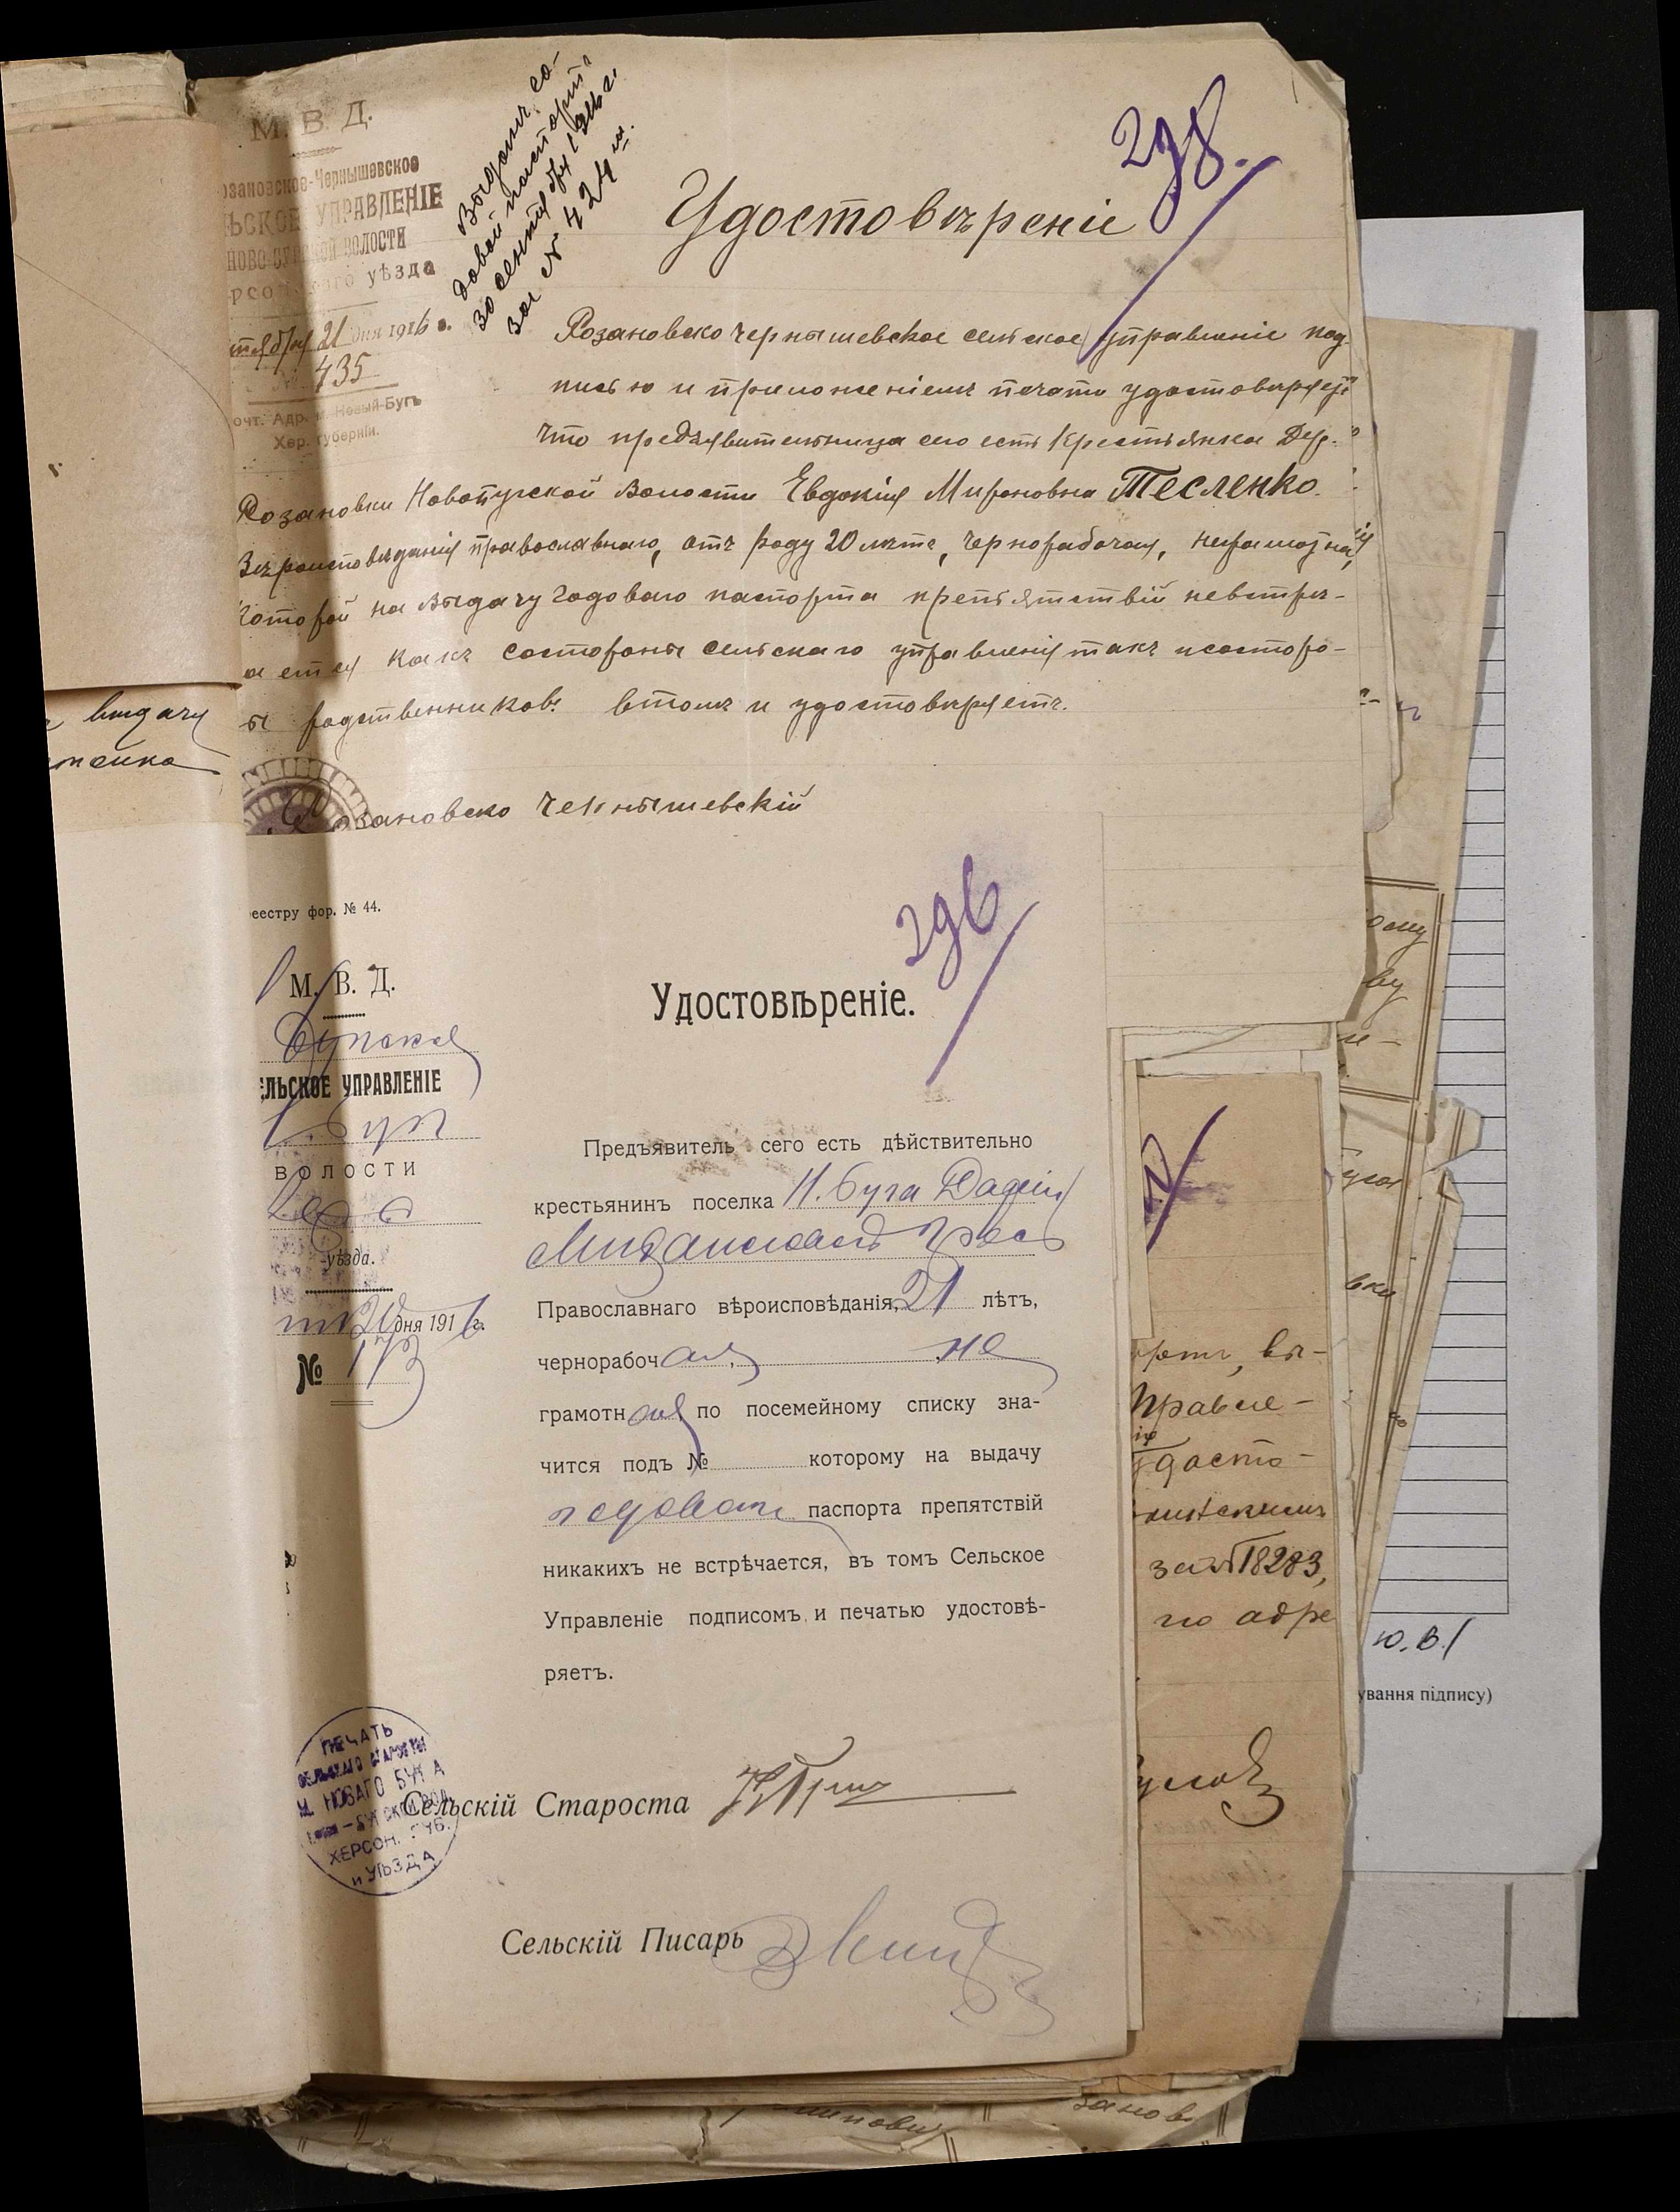 238.
М. В. Д.
озановское-Чернышевское
ЬСКОЕ УПРАВЛЕНІЕ
ВОЛОСТИ
уѣзда
21 дня 1916 г.
№ 435
очт. Адр. м. Новый-Бугъ
Хер. губерніи.
Выданъ го-
довой паспортъ
30 сентября 1916 г.
за № 424
Удостовѣреніе
Розановско Чернышевское сельское управленіе под-
писью и приложеніемъ печати удостовѣряетъ
что предъявительница сего есть крестьянка Дер.
Розановки Новобугской Волости Евдокія Мироновна Тесленко.
Вѣроисповѣданія православнаго, отъ роду 20 лѣтъ, чернорабочая, неграмотная,
которой на выдачу годового паспорта препятствій невстрѣ-
ается какъ состороны сельскаго управленія такъ исосторо-
ы родственниковъ втомъ и удостовѣряетъ.
озановско Чернышевскій
выдачу
296
еестру фор. № 44.
М. В. Д.
ЕЛЬСКОЕ УПРАВЛЕНІЕ
Бугъ
ВОЛОСТИ
уѣзда.
дня 1916 г.
№ 173
Удостовѣреніе.
Предъявитель сего есть дѣйствительно
крестьянинъ поселка Н. Буга
Православнаго вѣроисповѣданія, 21 лѣтъ,
чернорабочая, не
грамотная по посемейному списку зна-
чится подъ № которому на выдачу
годового паспорта препятствій
никакихъ не встрѣчается, въ томъ Сельское
Управленіе подписомъ и печатью удостовѣ-
ряетъ.
Сельскій Староста
Сельскій Писарь
ПЕЧАТЬ
СЕЛЬСКАГО СТАРОСТЫ
М. НОВАГО БУГА
ХЕРСОН. ГУБ.
и УѢЗДА
вы-
Правле-
досто-
за № 18283,
по адре
ю.в.
ування підпису)